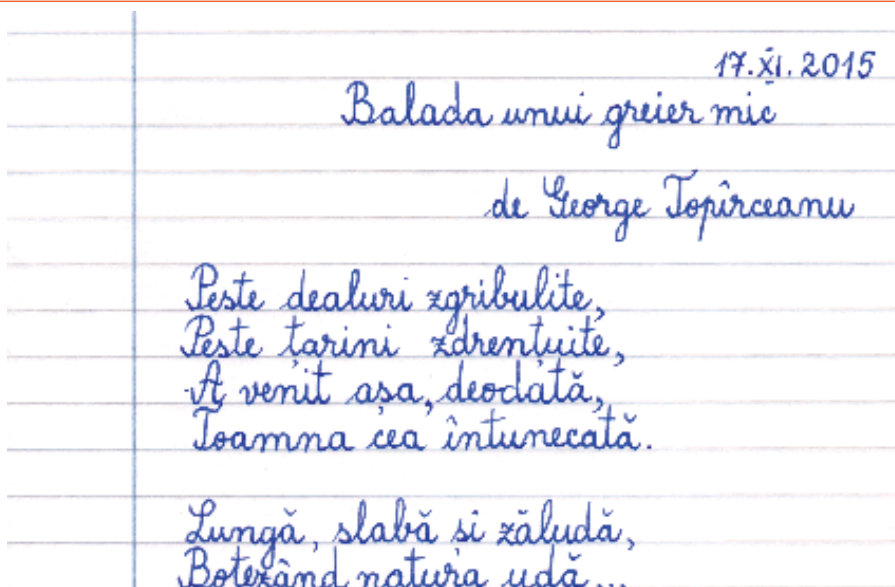 17.XI.2015
Balada unui greier mic
de George Topîrceanu
Peste dealuri zgribulite,
Peste țarini zdrențuite,
A venit așa, deodată,
Toamna cea întunecată.
Lungă, slabă și zăludă,
Botezând natura udă...